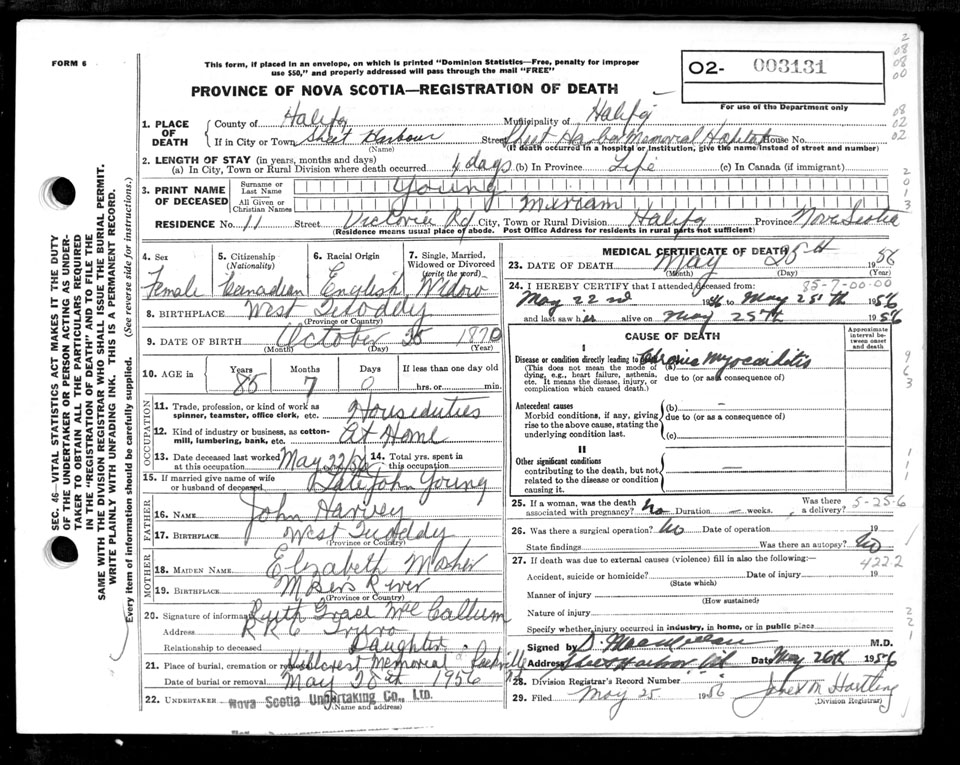 FORM 6
This form, if placed in an envelope, on which is printed "Dominion Statistics—Free, penalty for improper
use $50," and properly addressed will pass through the mail "FREE"
PROVINCE OF NOVA SCOTIA—REGISTRATION OF DEATH
O2- 003131
For use of the Department only
2 08 08 00
08 02 02
2013
963
111
221
SEC. 46—VITAL STATISTICS ACT MAKES IT THE DUTY
OF THE UNDERTAKER OR PERSON ACTING AS UNDER-
TAKER TO OBTAIN ALL THE PARTICULARS REQUIRED
IN THE "REGISTRATION OF DEATH" AND TO FILE THE
SAME WITH THE DIVISION REGISTRAR WHO SHALL ISSUE THE BURIAL PERMIT.
WRITE PLAINLY WITH UNFADING INK. THIS IS A PERMANENT RECORD.
Every item of information should be carefully supplied. (See reverse side for instructions.)
1. PLACE OF DEATH
County of Halifax Municipality of Halifax
If in City or Town Sheet Harbour Street Sheet Harbor Memorial Hospital House No.
(Name) (If death occurred in a hospital or institution, give the name instead of street and number)
2. LENGTH OF STAY (in years, months and days)
(a) In City, Town or Rural Division where death occurred 4 days (b) In Province Life (c) In Canada (if immigrant)
3. PRINT NAME OF DECEASED
Surname or Last Name Young
All Given or Christian Names Miriam
RESIDENCE No. 11 Street Victoria Rd City, Town or Rural Division Halifax Province Nova Scotia
(Residence means usual place of abode. Post Office Address for residents in rural parts not sufficient)
4. Sex
Female
5. Citizenship
(Nationality)
Canadian
6. Racial Origin
English
7. Single, Married,
Widowed or Divorced
(write the word)
Widow
8. BIRTHPLACE West
(Province or Country)
9. DATE OF BIRTH October 25 1870
(Month) (Day) (Year)
10. AGE Years Months Days If less than one day old
85 7 0 hrs. or min.
OCCUPATION
11. Trade, profession, or kind of work as
spinner, teamster, office clerk, etc. Houseduties
12. Kind of industry or business, as cotton-
mill, lumbering, bank, etc. At Home
13. Date deceased last worked
at this occupation May 22/56
14. Total yrs. spent in
this occupation
15. If married give name of wife
or husband of deceased Late John Young
FATHER
16. NAME John Harvey
17. BIRTHPLACE West
(Province or Country)
MOTHER
18. MAIDEN NAME Elizabeth Mosher
19. BIRTHPLACE Mosers River
(Province or Country)
20. Signature of informant Ruth Grace McCallum
Address R R 6 Truro
Relationship to deceased Daughter
21. Place of burial, cremation or removal Hillcrest Memorial Sackville
Date of burial or removal May 28th 1956
22. UNDERTAKER Nova Scotia Undertaking Co., Ltd.
(Name and address)
MEDICAL CERTIFICATE OF DEATH
23. DATE OF DEATH May 25th 1956
(Month) (Day) (Year)
24. I HEREBY CERTIFY that I attended deceased from: 85-7-00-00
May 22nd 1956 to May 25th 1956
and last saw her alive on May 25th 1956
CAUSE OF DEATH
Approximate
interval be-
tween onset
and death
I
Disease or condition directly leading to (a) Chronic Myocarditis
(This does not mean the mode of
dying, e.g., heart failure, asthenia,
etc. It means the disease, injury, or
complication which caused death.)
due to (or as a consequence of)
Antecedent causes
Morbid conditions, if any, giving
rise to the above cause, stating the
underlying condition last.
(b) —
due to (or as a consequence of)
(c)
II
Other significant conditions
contributing to the death, but not
related to the disease or condition
causing it.
—
25. If a woman, was the death
associated with pregnancy? No Duration — weeks. Was there
a delivery? 5-25-6
26. Was there a surgical operation? No Date of operation 19
State findings Was there an autopsy? No
27. If death was due to external causes (violence) fill in also the following:— 4222
Accident, suicide or homicide? Date of injury 19
(State which)
Manner of injury
(How sustained)
Nature of injury
Specify whether injury occurred in industry, in home, or in public place
Signed D. MacMillan M.D.
Address Sheet Harbor Date May 26th 1956
28. Division Registrar's Record Number
29. Filed May 25 1956 M Hartling
(Division Registrar)